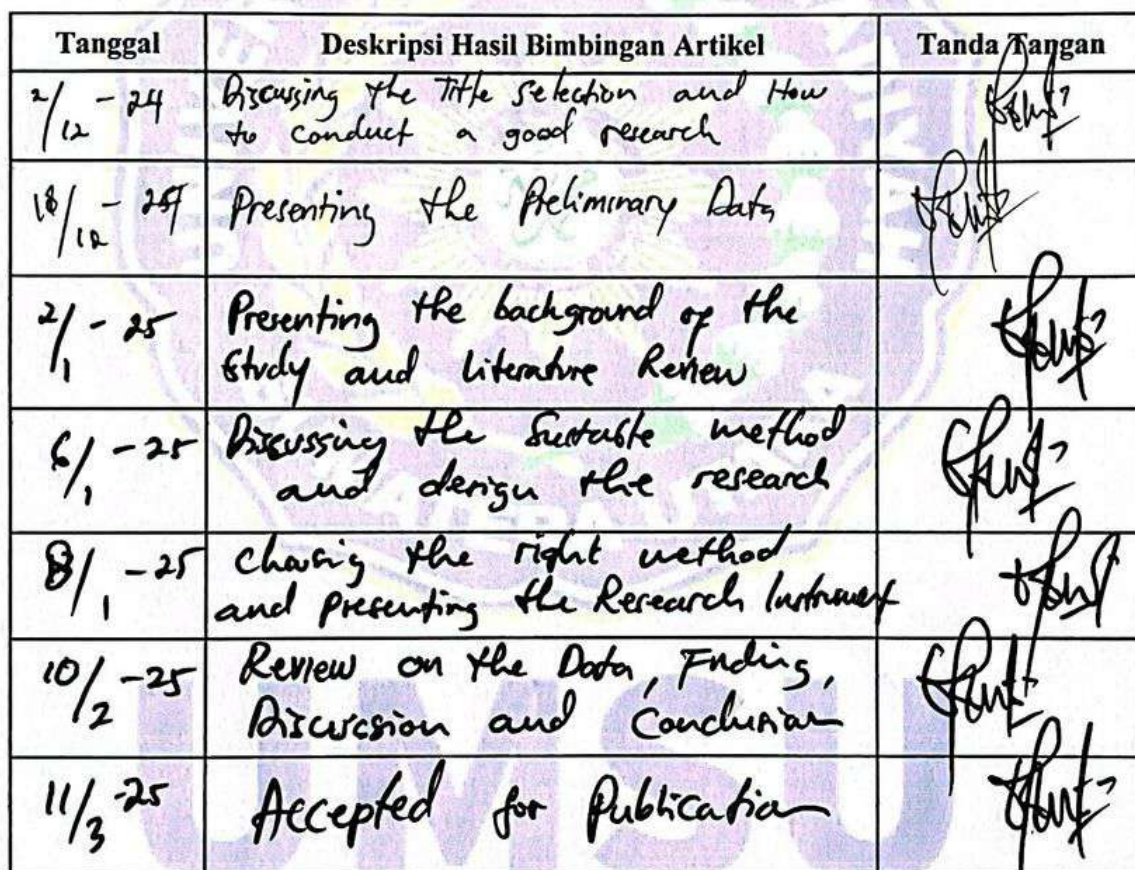 Tanggal Deskripsi Hasil Bimbingan Artikel Tanda Tangan
2/12 - 24 Discussing the Title selection and How
to conduct a good research
18/12 - Presenting the Preliminary Data
2/1 - 25 Presenting the background of the
Study and Literature Review
6/1 - 25 Discussing the Suitable method
and design the research
8/1 - 25 Chosing the right method
and presenting the Research Instrument
10/2 - 25 Review on the Data, Finding,
Discussion and Conclusion
11/3 - 25 Accepted for Publication
UMSU